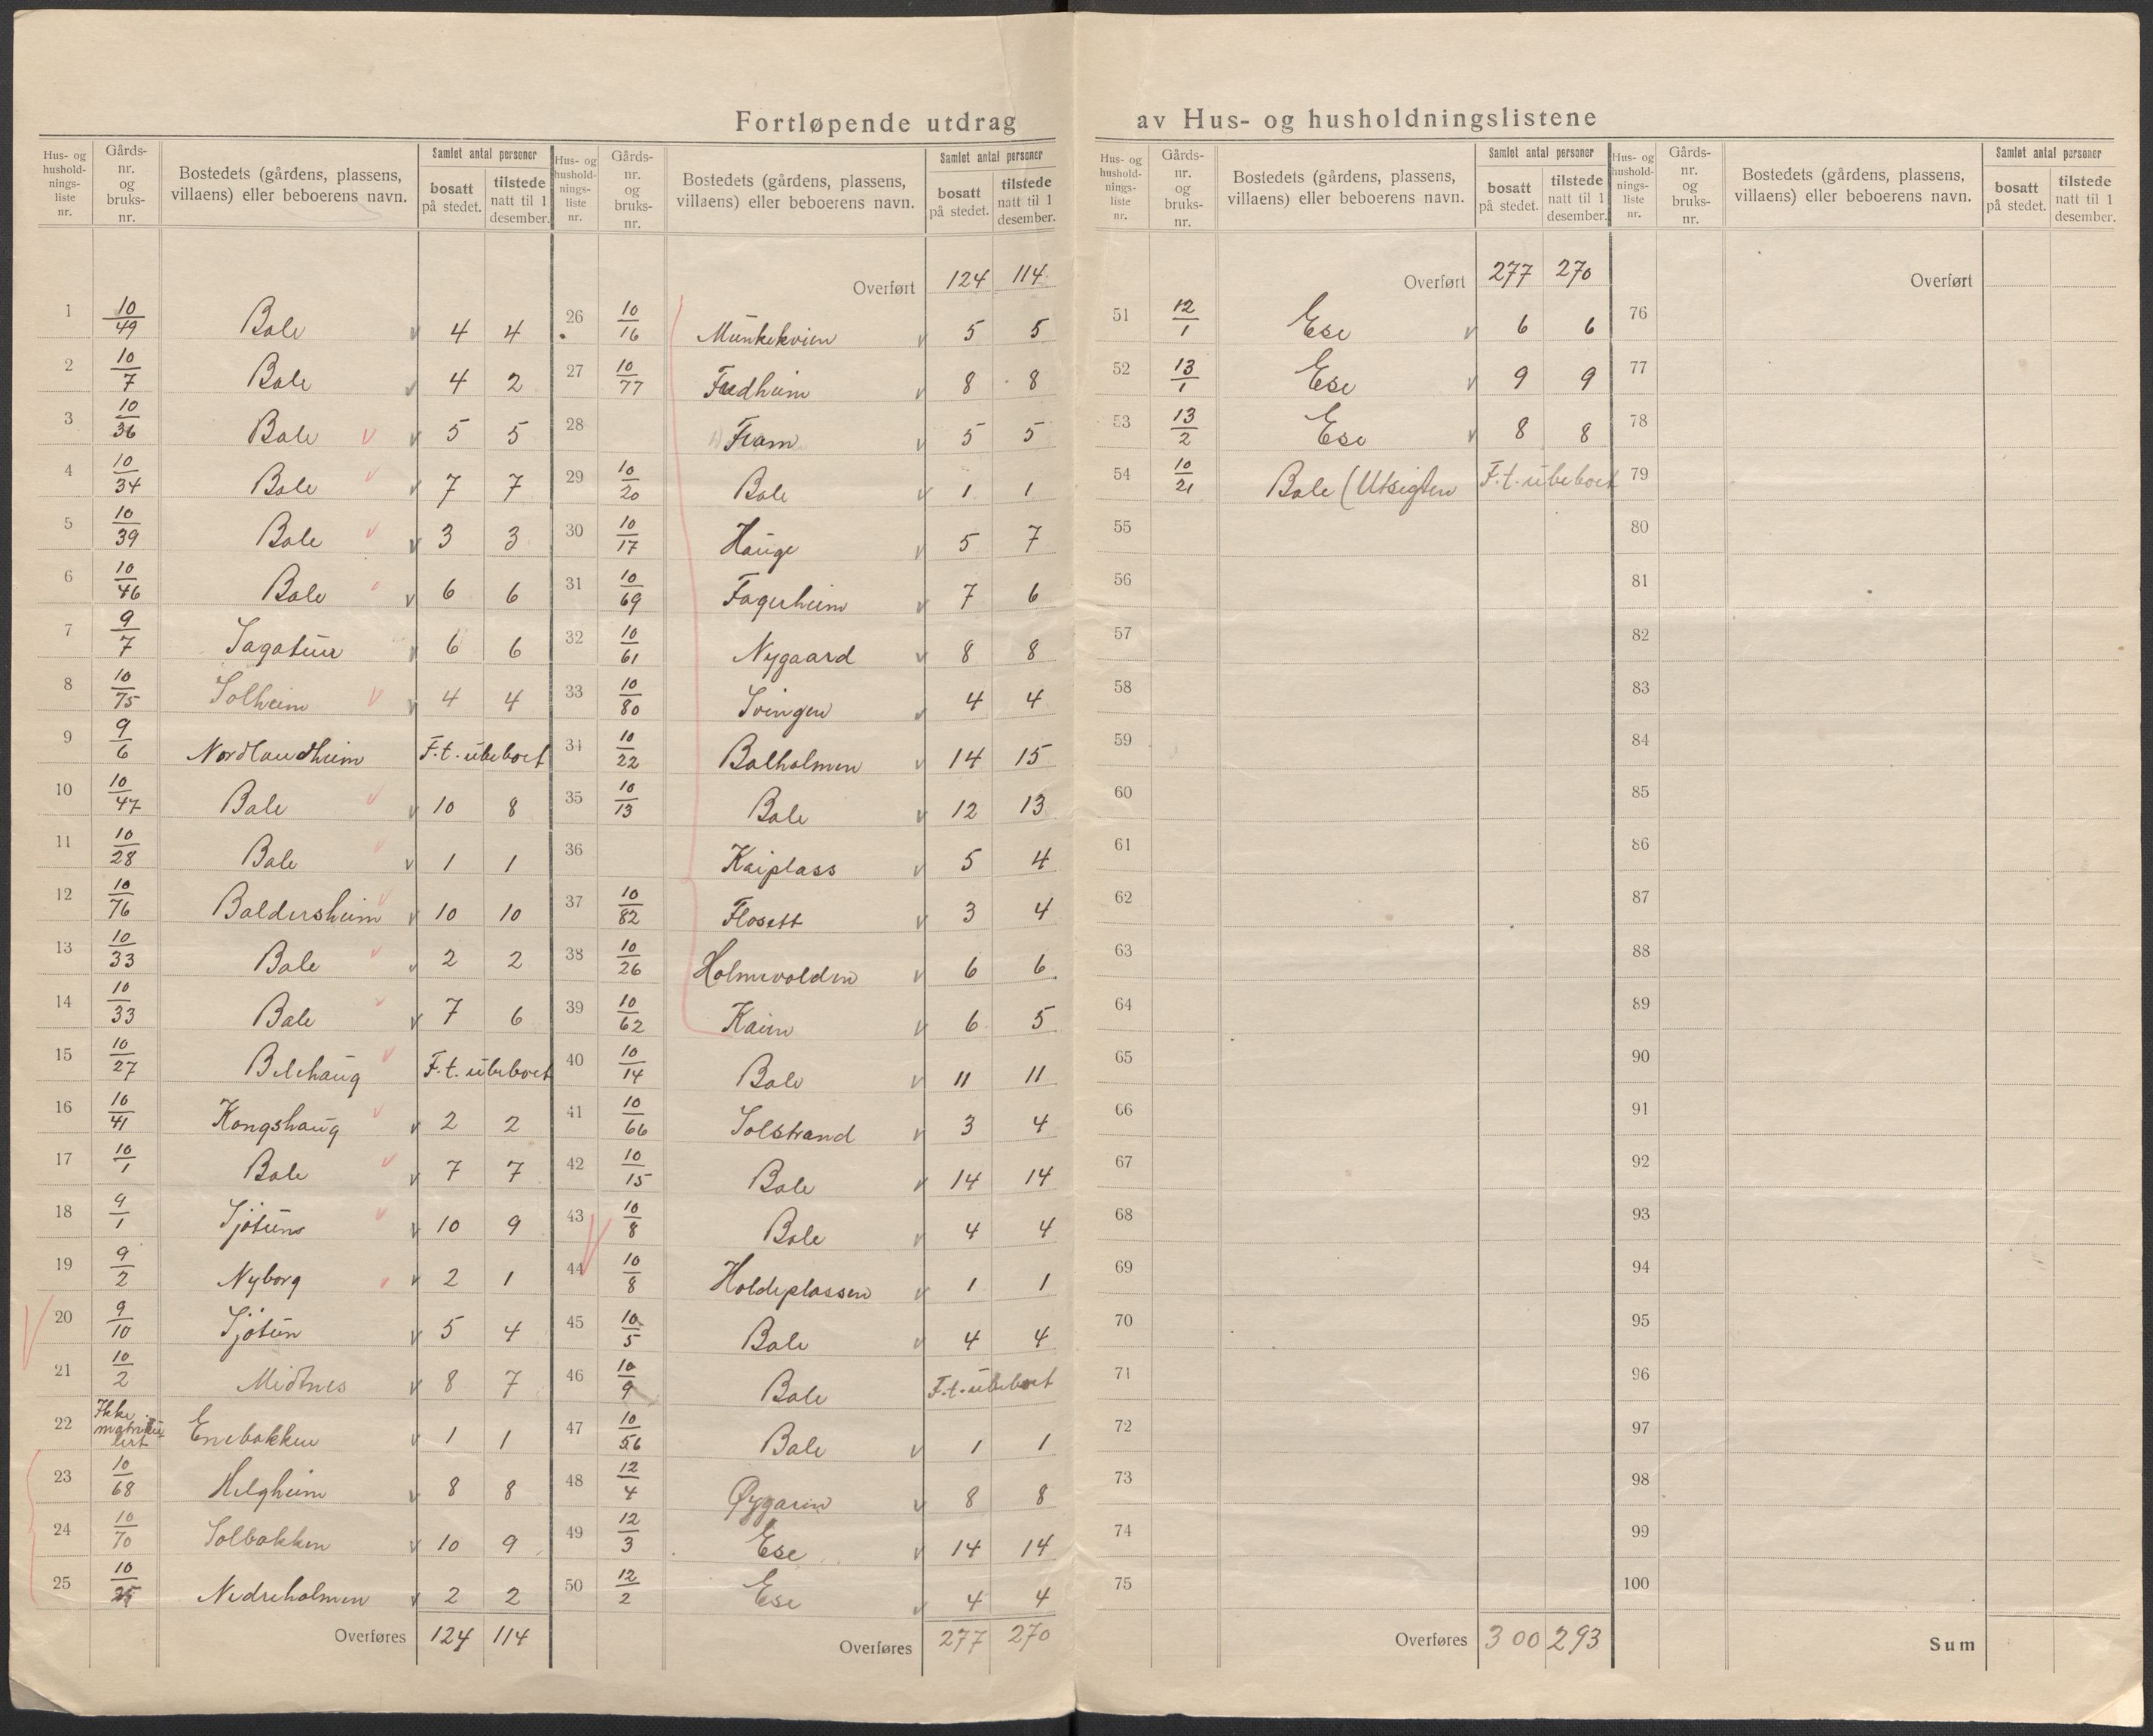 Fortløpende utdrag av Hus- og husholdningslistene
Hus- og hushold-nings-liste nr. | Gårds-nr. og bruks-nr. | Bostedets (gårdens, plassens, villaens) eller beboerens navn. | Samlet antal personer | bosatt på stedet. | tilstede natt til 1 desember.
1 10/49 Bale 4 4
2 10/7 Bale 4 2
3 10/36 Bale 5 5
4 10/34 Bale 7 7
5 10/39 Bale 3 3
6 10/46 Bale 6 6
7 9/7 Sagatun 6 6
8 10/75 Solheim 4 4
9 9/6 Nordlandheim F.t. ubeboet
10 10/47 Bale 10 8
11 10/28 Bale 1 1
12 10/76 Baldersheim 10 10
13 10/33 Bale 2 2
14 10/33 Bale 7 6
15 10/27 Belehaug F.t. ubeboet
16 10/41 Kongshaug 2 2
17 10/1 Bale 7 7
18 9/1 Sjøtun 10 9
19 9/2 Nyborg 2 1
20 9/10 Sjøtun 5 4
21 10/2 Midtnes 8 7
22 Ikke matriku-lert Enebakken 1 1
23 10/68 Helgheim 8 8
24 10/70 Solbakken 10 9
25 10/ Nedreholmen 2 2
Overføres 124 114
Hus- og hushold-nings-liste nr. | Gårds-nr. og bruks-nr. | Bostedets (gårdens, plassens, villaens) eller beboerens navn. | Samlet antal personer | bosatt på stedet. | tilstede natt til 1 desember.
Overført 124 114
26 10/16 Munkekvien 5 5
27 10/77 Fredheim 8 8
28 Fram 5 5
29 10/20 Bale 1 1
30 10/17 Hauge 5 7
31 10/69 Fagerheim 7 6
32 10/61 Nygaard 8 8
33 10/80 Svingen 4 4
34 10/22 Balholmen 14 15
35 10/13 Bale 12 13
36 Kaiplass 5 4
37 10/82 Flosett 3 4
38 10/26 Holmevolden 6 6
39 10/62 Kaien 6 5
40 10/14 Bale 11 11
41 10/66 Solstrand 3 4
42 10/15 Bale 14 14
43 10/8 Bale 4 4
44 10/8 Holdeplassen 1 1
45 10/5 Bale 4 4
46 10/9 Bale F.t. ubeboet
47 10/56 Bale 1 1
48 12/4 Øygaren 8 8
49 12/3 Ese 14 14
50 12/2 Ese 4 4
Overføres 277 270
Hus- og hushold-nings-liste nr. | Gårds-nr. og bruks-nr. | Bostedets (gårdens, plassens, villaens) eller beboerens navn. | Samlet antal personer | bosatt på stedet. | tilstede natt til 1 desember.
Overført 277 270
51 12/1 Ese 6 6
52 13/1 Ese 9 9
53 13/2 Ese 8 8
54 10/21 Bale (Utsigten F.t. ubeboet
55
56
57
58
59
60
61
62
63
64
65
66
67
68
69
70
71
72
73
74
75
Overføres 300 293
Hus- og hushold-nings-liste nr. | Gårds-nr. og bruks-nr. | Bostedets (gårdens, plassens, villaens) eller beboerens navn. | Samlet antal personer | bosatt på stedet. | tilstede natt til 1 desember.
Overført
76
77
78
79
80
81
82
83
84
85
86
87
88
89
90
91
92
93
94
95
96
97
98
99
100
Sum